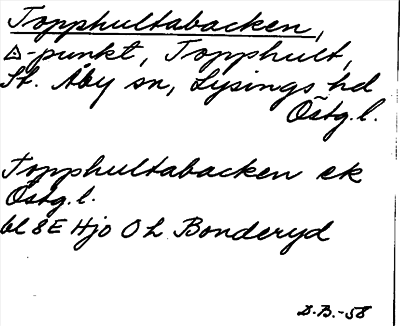 Topphultabacken,
△-punkt, Topphult,
St. Åby sn, Lysings hd
Östg.l.
Topphultabacken ek
Östg.l.
bl 8E Hjo O L Bonderyd
D.B.-58